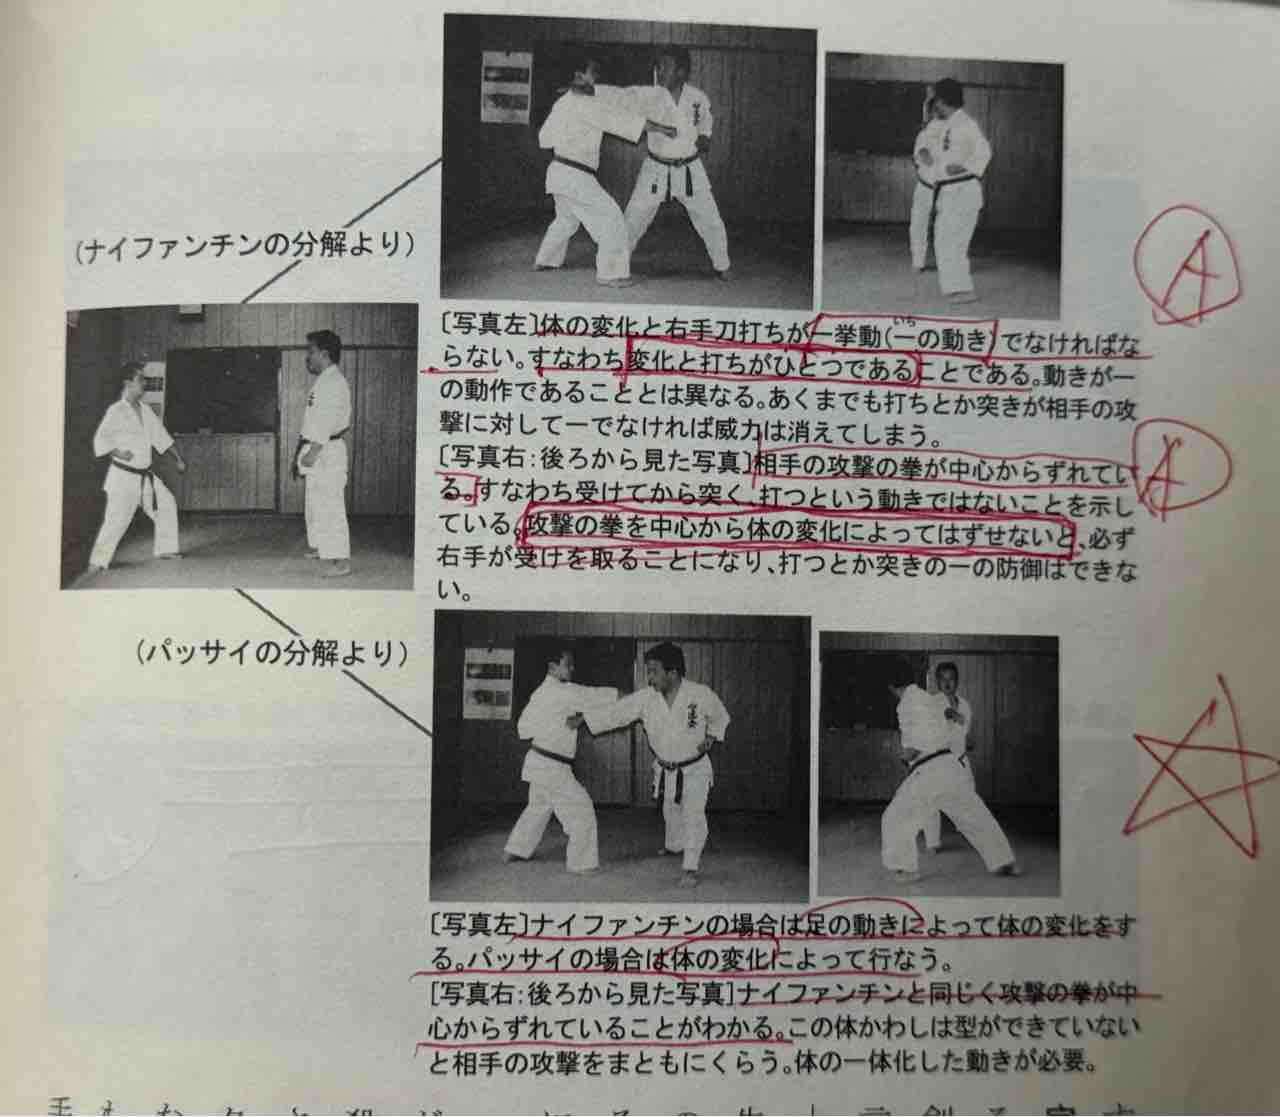 (ナイファンチンの分解より)
A
[写真左]体の変化と右手刀打ちが一挙動(一の動き)でなければな
いち
らない。すなわち変化と打ちがひとつであることである。動きが一
の動作であることとは異なる。あくまでも打ちとか突きが相手の攻
撃に対して一でなければ威力は消えてしまう。
[写真右:後ろから見た写真]相手の攻撃の拳が中心からずれてい
A
る。すなわち受けてから突く、打つという動きではないことを示し
ている。攻撃の拳を中心から体の変化によってはずせないと、必ず
右手が受けを取ることになり、打つとか突きの一の防御はできな
い。
(パッサイの分解より)
[写真左]ナイファンチンの場合は足の動きによって体の変化をす
る。パッサイの場合は体の変化によって行なう。
[写真右:後ろから見た写真]ナイファンチンと同じく攻撃の拳が中
心からずれていることがわかる。この体かわしは型ができていない
と相手の攻撃をまともにくらう。体の一体化した動きが必要。